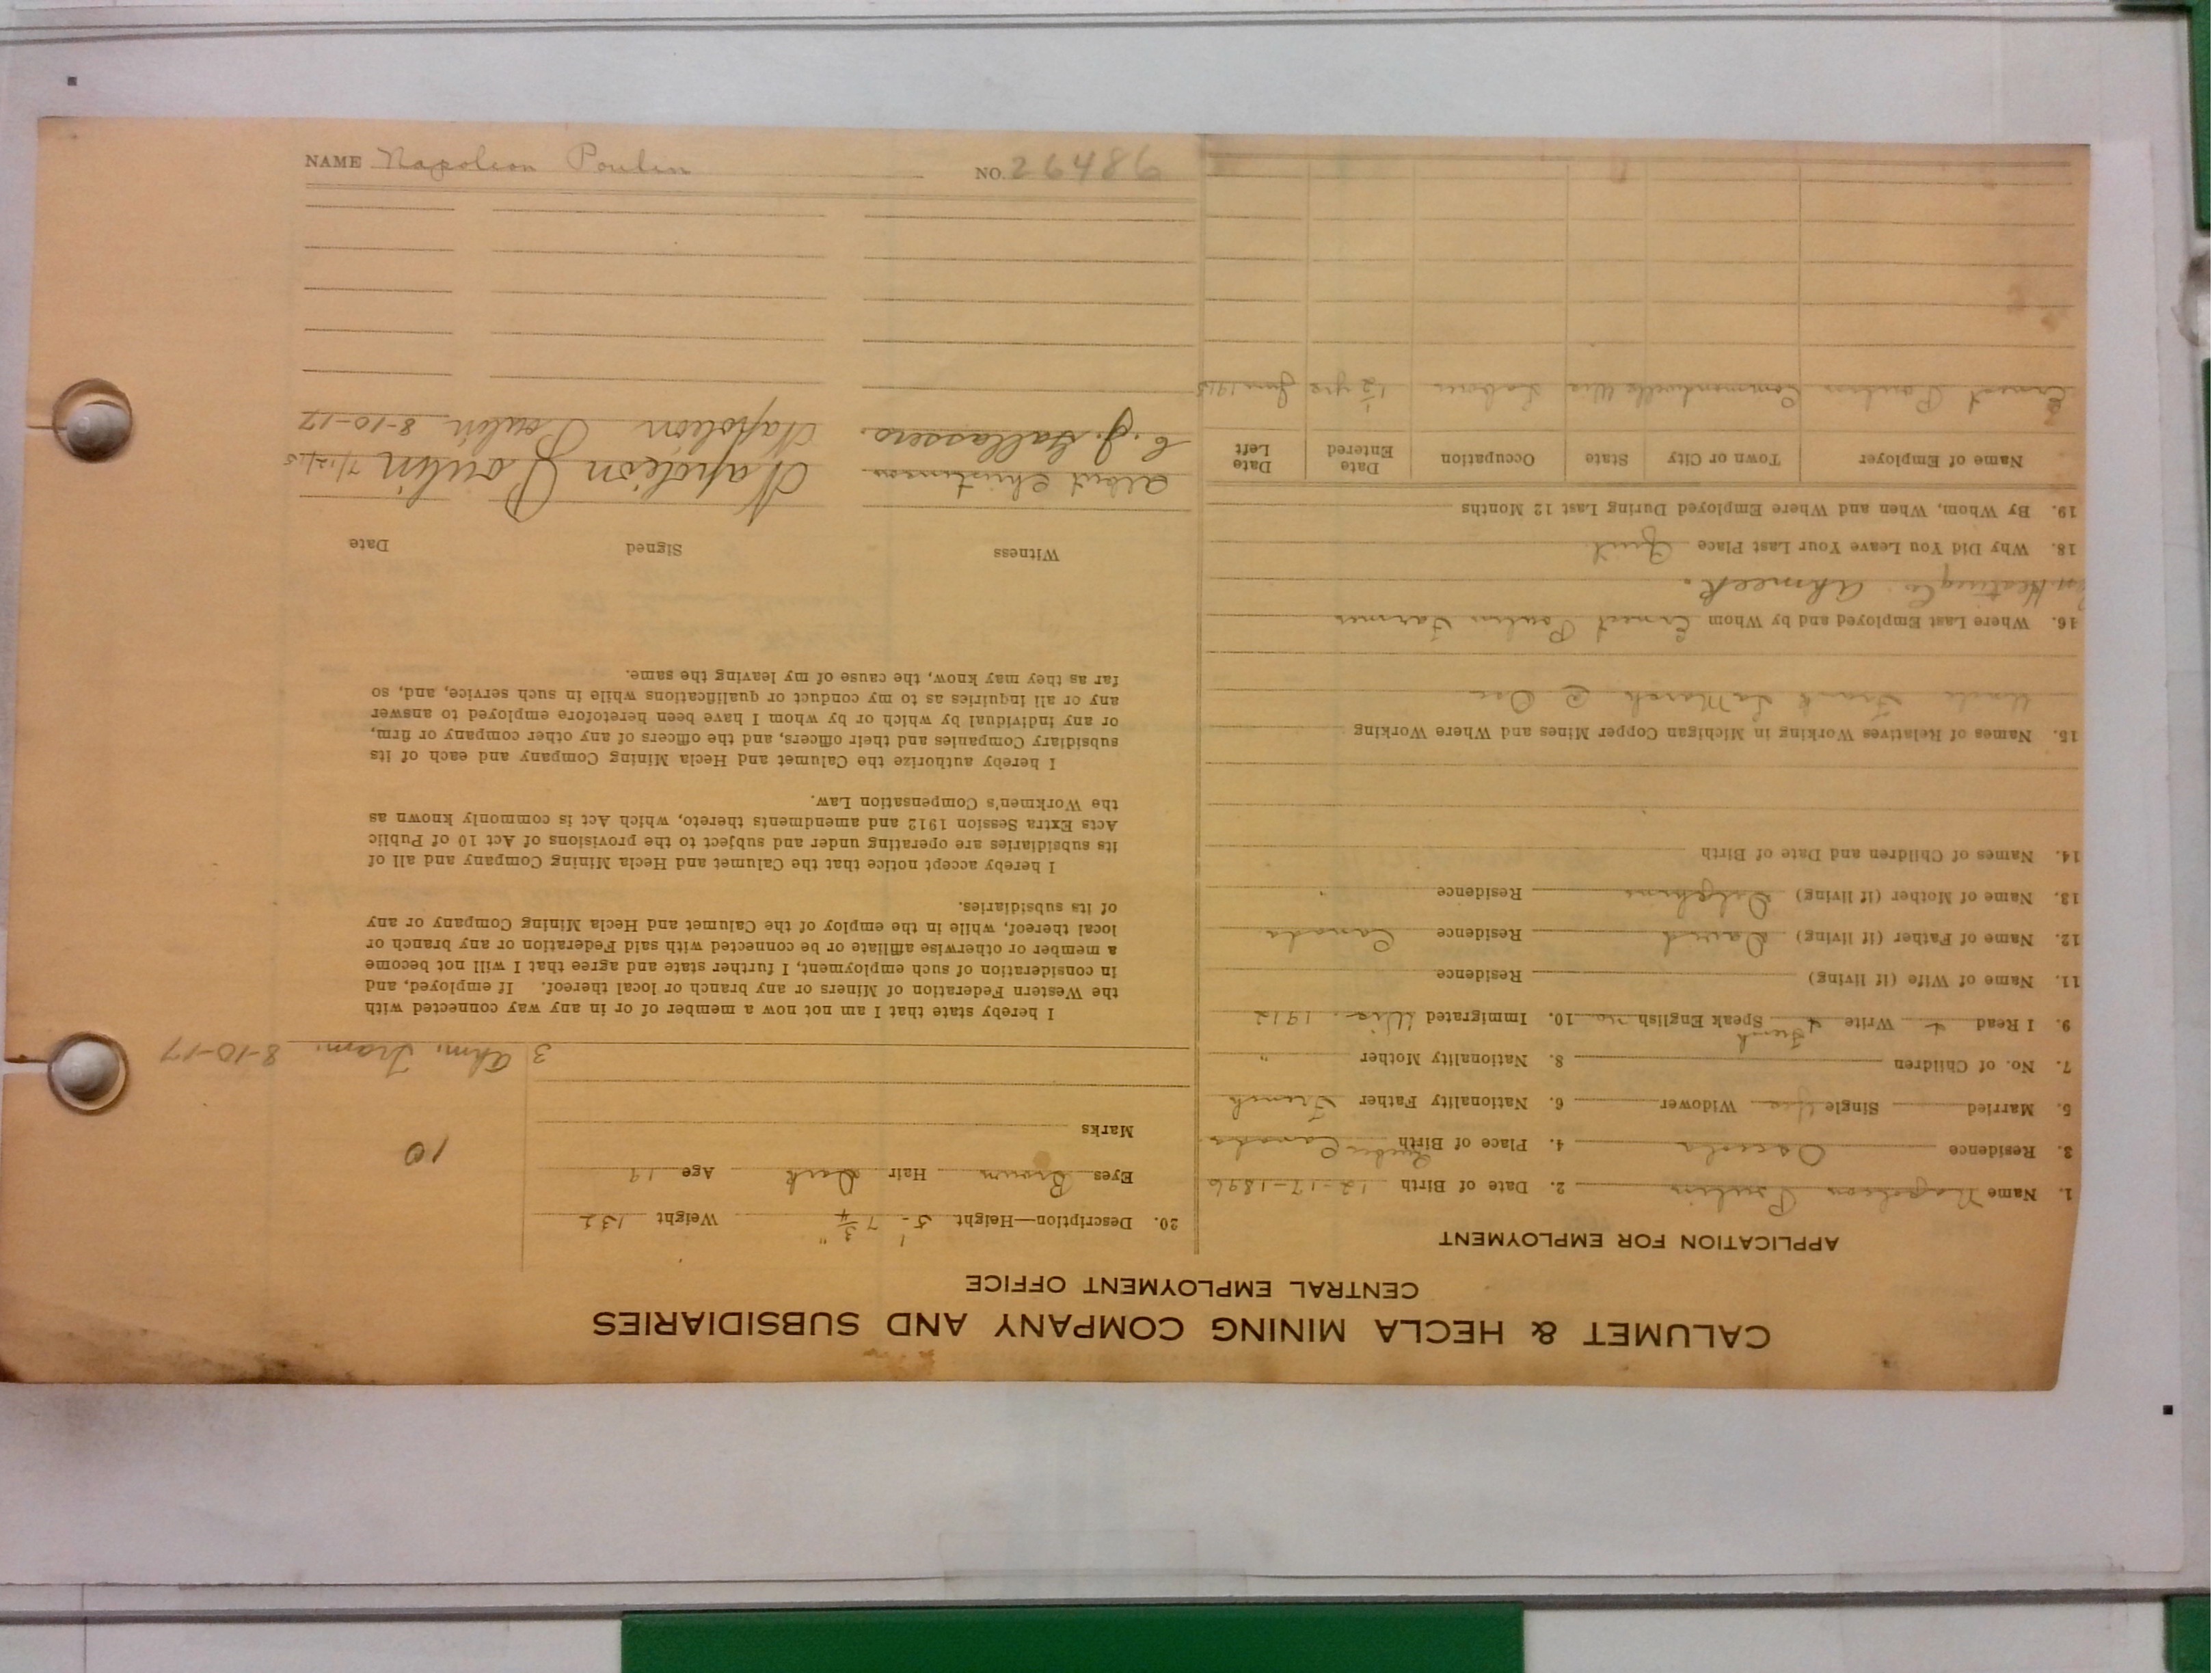 CALUMET & HECLA MINING COMPANY AND SUBSIDIARIES
CENTRAL EMPLOYMENT OFFICE
APPLICATION FOR EMPLOYMENT
1. Name Napoleon Poulin 2. Date of Birth 12-17-1896
3. Residence Osceola 4. Place of Birth Quebec Canada
5. Married Single Yes Widower 6. Nationality Father French
7. No. of Children 8. Nationality Mother "
9. I Read + Write + Speak English no French 10. Immigrated Wis. 1912
11. Name of Wife (if living) Residence
12. Name of Father (if living) David Residence Canada
13. Name of Mother (if living) Delphine Residence "
14. Names of Children and Date of Birth
15. Names of Relatives Working in Michigan Copper Mines and Where Working
Uncle Frank LaMarsh @ Osc
16. Where Last Employed and by Whom Ernest Poulin Farmer
Heating Co. Ahmeek.
18. Why Did You Leave Your Last Place Quit
19. By Whom, When and Where Employed During Last 12 Months
Name of Employer Town or City State Occupation Date Entered Date Left
Ernest Poulin Commonwealth Wis Labour 1½ yrs June 1915
20. Description—Height 5' - 7 3/4" Weight 132
Eyes Brown Hair Dark Age 19
Marks
10
3 Ahm. Tram. 8-10-17
I hereby state that I am not now a member of or in any way connected with
the Western Federation of Miners or any branch or local thereof. If employed, and
in consideration of such employment, I further state and agree that I will not become
a member or otherwise affiliate or be connected with said Federation or any branch or
local thereof, while in the employ of the Calumet and Hecla Mining Company or any
of its subsidiaries.
I hereby accept notice that the Calumet and Hecla Mining Company and all of
its subsidiaries are operating under and subject to the provisions of Act 10 of Public
Acts Extra Session 1912 and amendments thereto, which Act is commonly known as
the Workmen's Compensation Law.
I hereby authorize the Calumet and Hecla Mining Company and each of its
subsidiary Companies and their officers, and the officers of any other company or firm,
or any individual by which or by whom I have been heretofore employed to answer
any or all inquiries as to my conduct or qualifications while in such service, and, so
far as they may know, the cause of my leaving the same.
Witness Signed Date
Albert Christinson Napoléon Poulin 7/12/15
C. J. Gallassero. Napoléon Poulin 8-10-17
NAME Napoleon Poulin NO. 26486